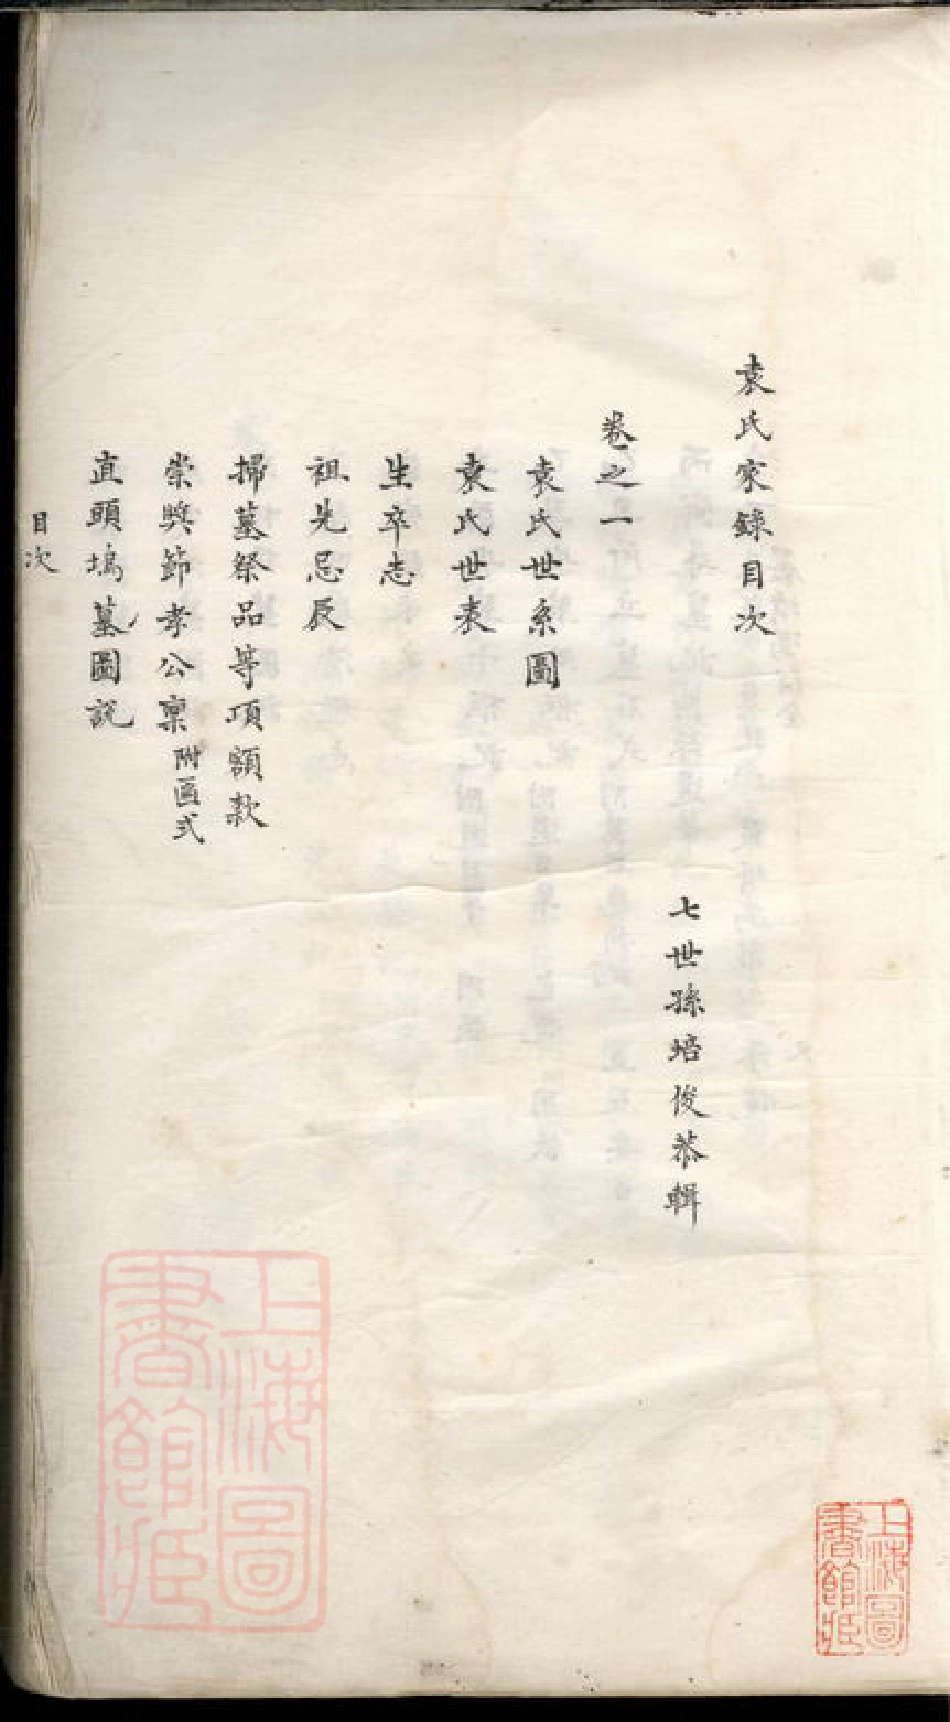 袁氏家錄目次
七世孫培俊恭輯
卷之一
袁氏世系圖
袁氏世表
生卒志
祖先忌辰
掃墓祭品等項額款
崇奬節孝公稟附匾式
直頭塢墓圖說
目次
上海圖書館藏
上海圖書館藏